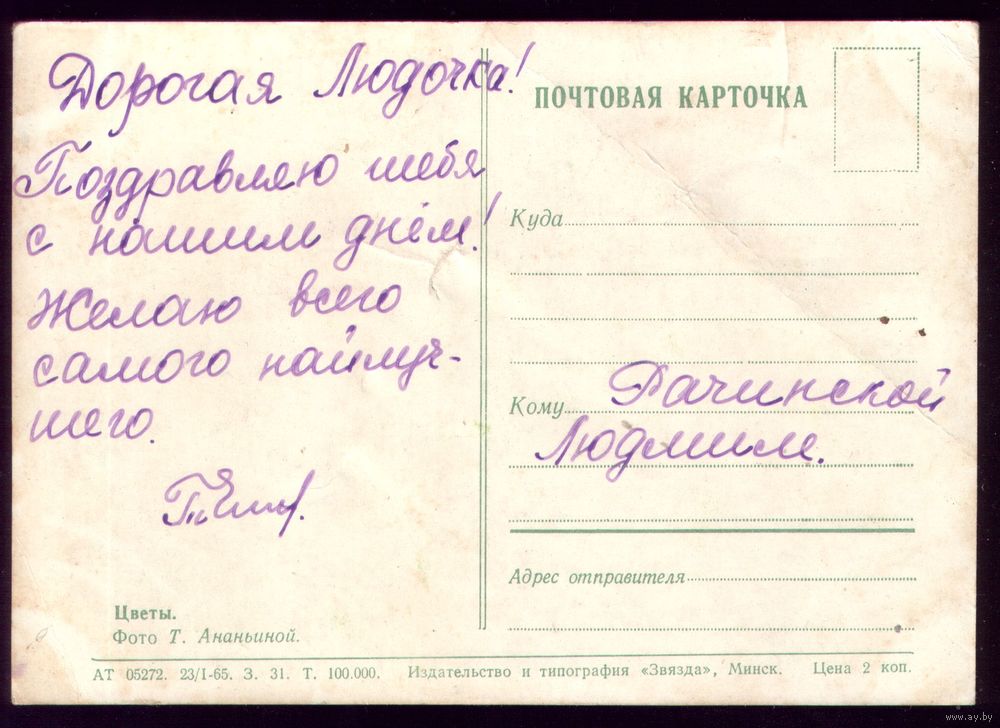 Дорогая Людочка!
Поздравляю тебя
с нашим днём!
Желаю всего
самого найлуч-
шего.
ПОЧТОВАЯ КАРТОЧКА
Куда
Кому Рачинской
Людмиле.
Адрес отправителя
Цветы.
Фото Т. Ананьиной.
АТ 05272. 23/I-65. З. 31. Т. 100.000. Издательство и типография «Звязда», Минск. Цена 2 коп.
www.ay.by